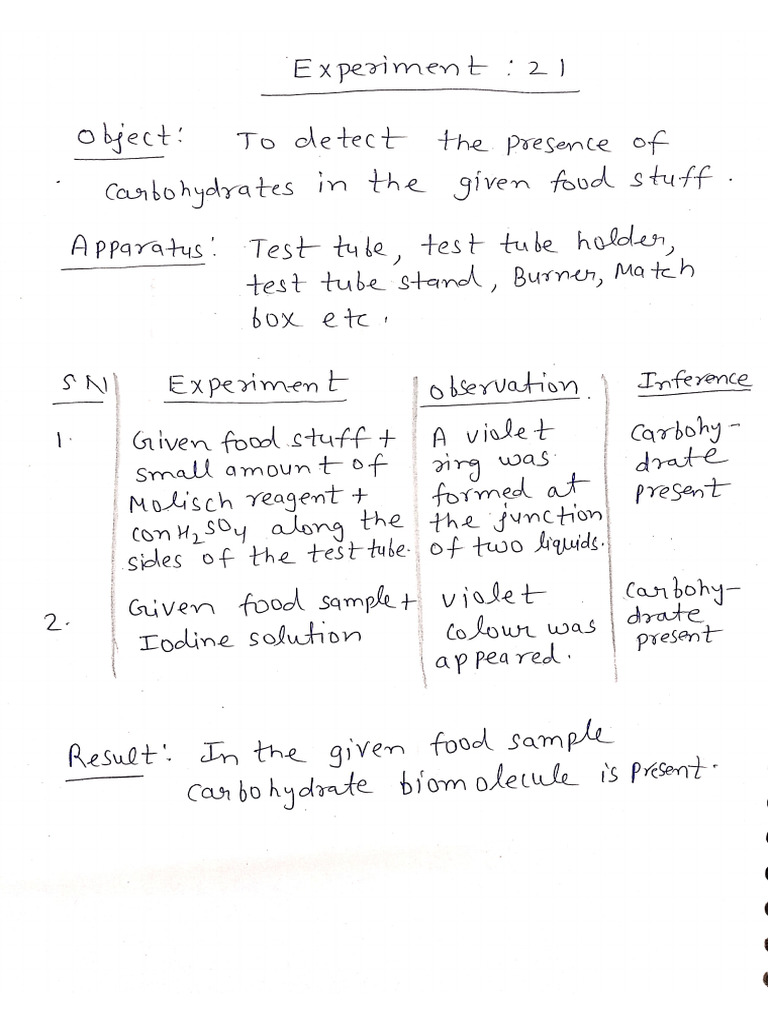 Experiment : 21
Object: To detect the presence of
carbohydrates in the given food stuff.
Apparatus: Test tube, test tube holder,
test tube stand, Burner, Match
box etc.
SN Experiment Observation. Inference
1. Given food stuff + A violet Carbohy-
small amount of ring was drate
Molisch reagent + formed at present
con H₂SO₄ along the the junction
sides of the test tube. of two liquids.
2. Given food sample + violet Carbohy-
Iodine solution colour was drate
appeared. present
Result: In the given food sample
carbohydrate biomolecule is present.